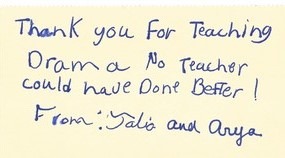 Thank you For Teaching
Drama No Teacher
could have Done Better!
From: Talia and Anya